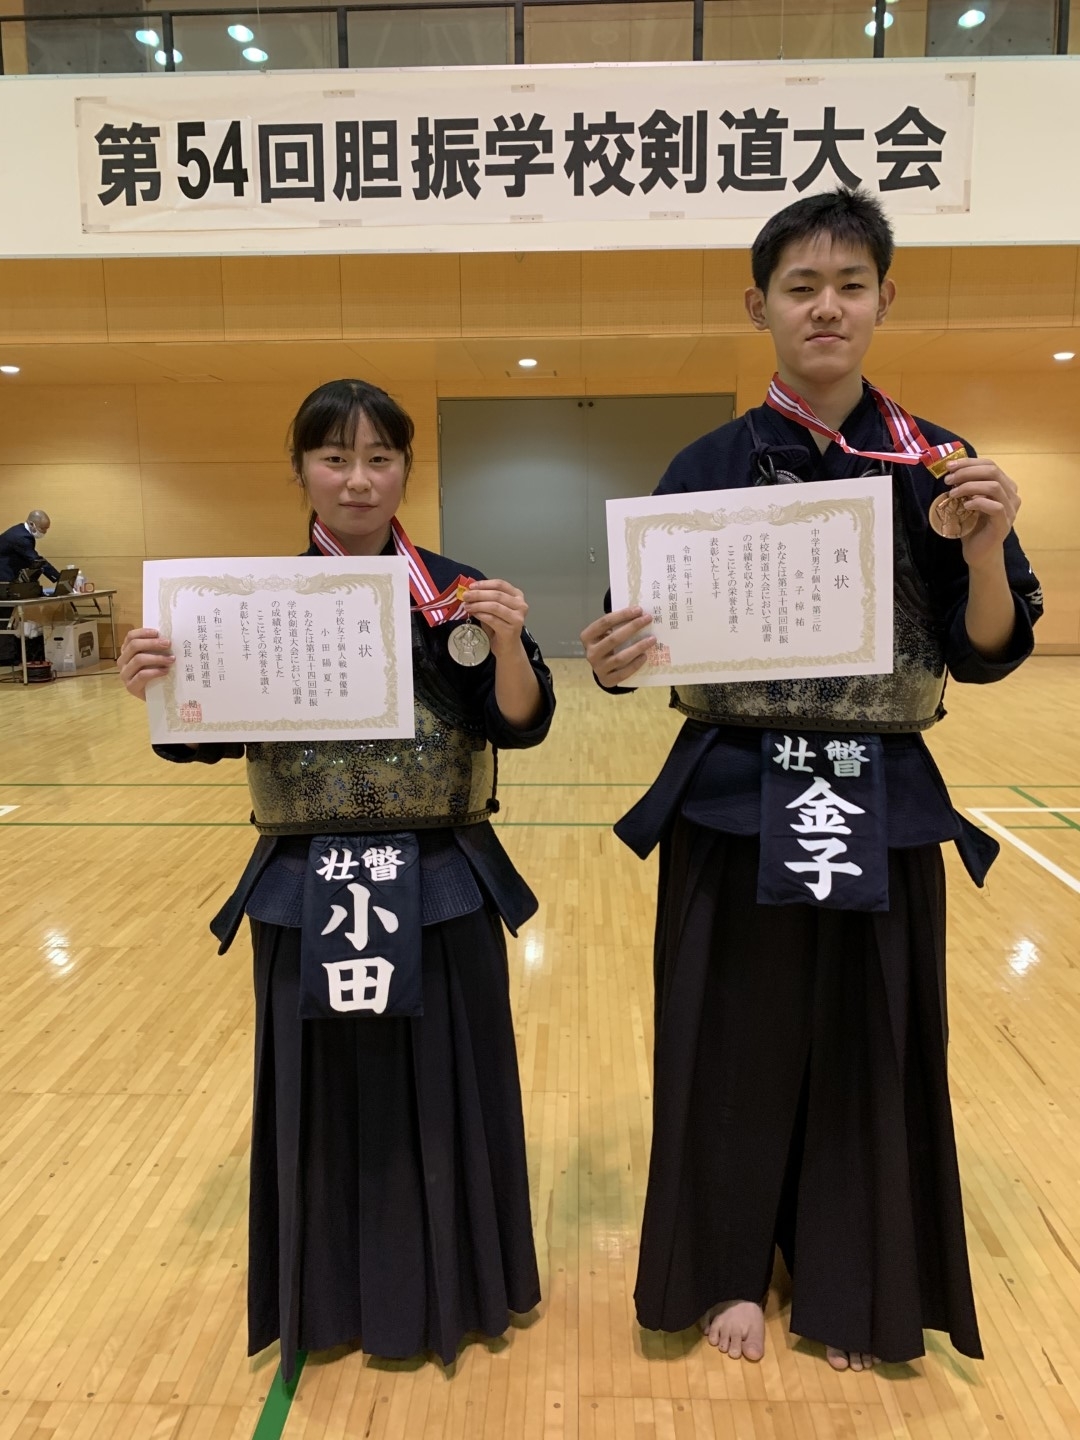 第54回胆振学校剣道大会
賞状
中学校女子個人戦 準優勝
小田陽夏子
あなたは第五十四回胆振
学校剣道大会において頭書
の成績を収めました
ここにその栄誉を讃え
表彰いたします
令和二年十一月三日
胆振学校剣道連盟
会長 岩瀬
賞状
中学校男子個人戦 第三位
金子椋祐
あなたは第五十四回胆振
学校剣道大会において頭書
の成績を収めました
ここにその栄誉を讃え
表彰いたします
令和二年十一月三日
胆振学校剣道連盟
会長 岩瀬
壮瞥
小田
壮瞥
金子